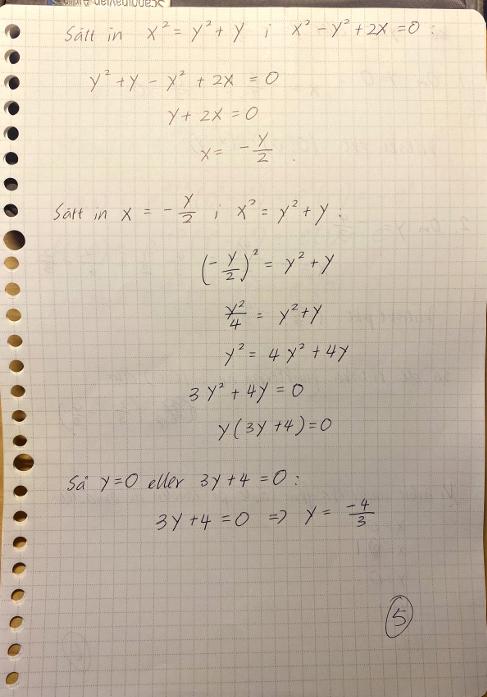 Sätt in x² = y² + y i x² - y² + 2x = 0 :
y² + y - y² + 2x = 0
y + 2x = 0
x = - y/2
Sätt in x = - y/2 i x² = y² + y :
(- y/2)² = y² + y
y²/4 = y² + y
y² = 4y² + 4y
3y² + 4y = 0
y(3y + 4) = 0
Så y = 0 eller 3y + 4 = 0 :
3y + 4 = 0 => y = -4/3
5